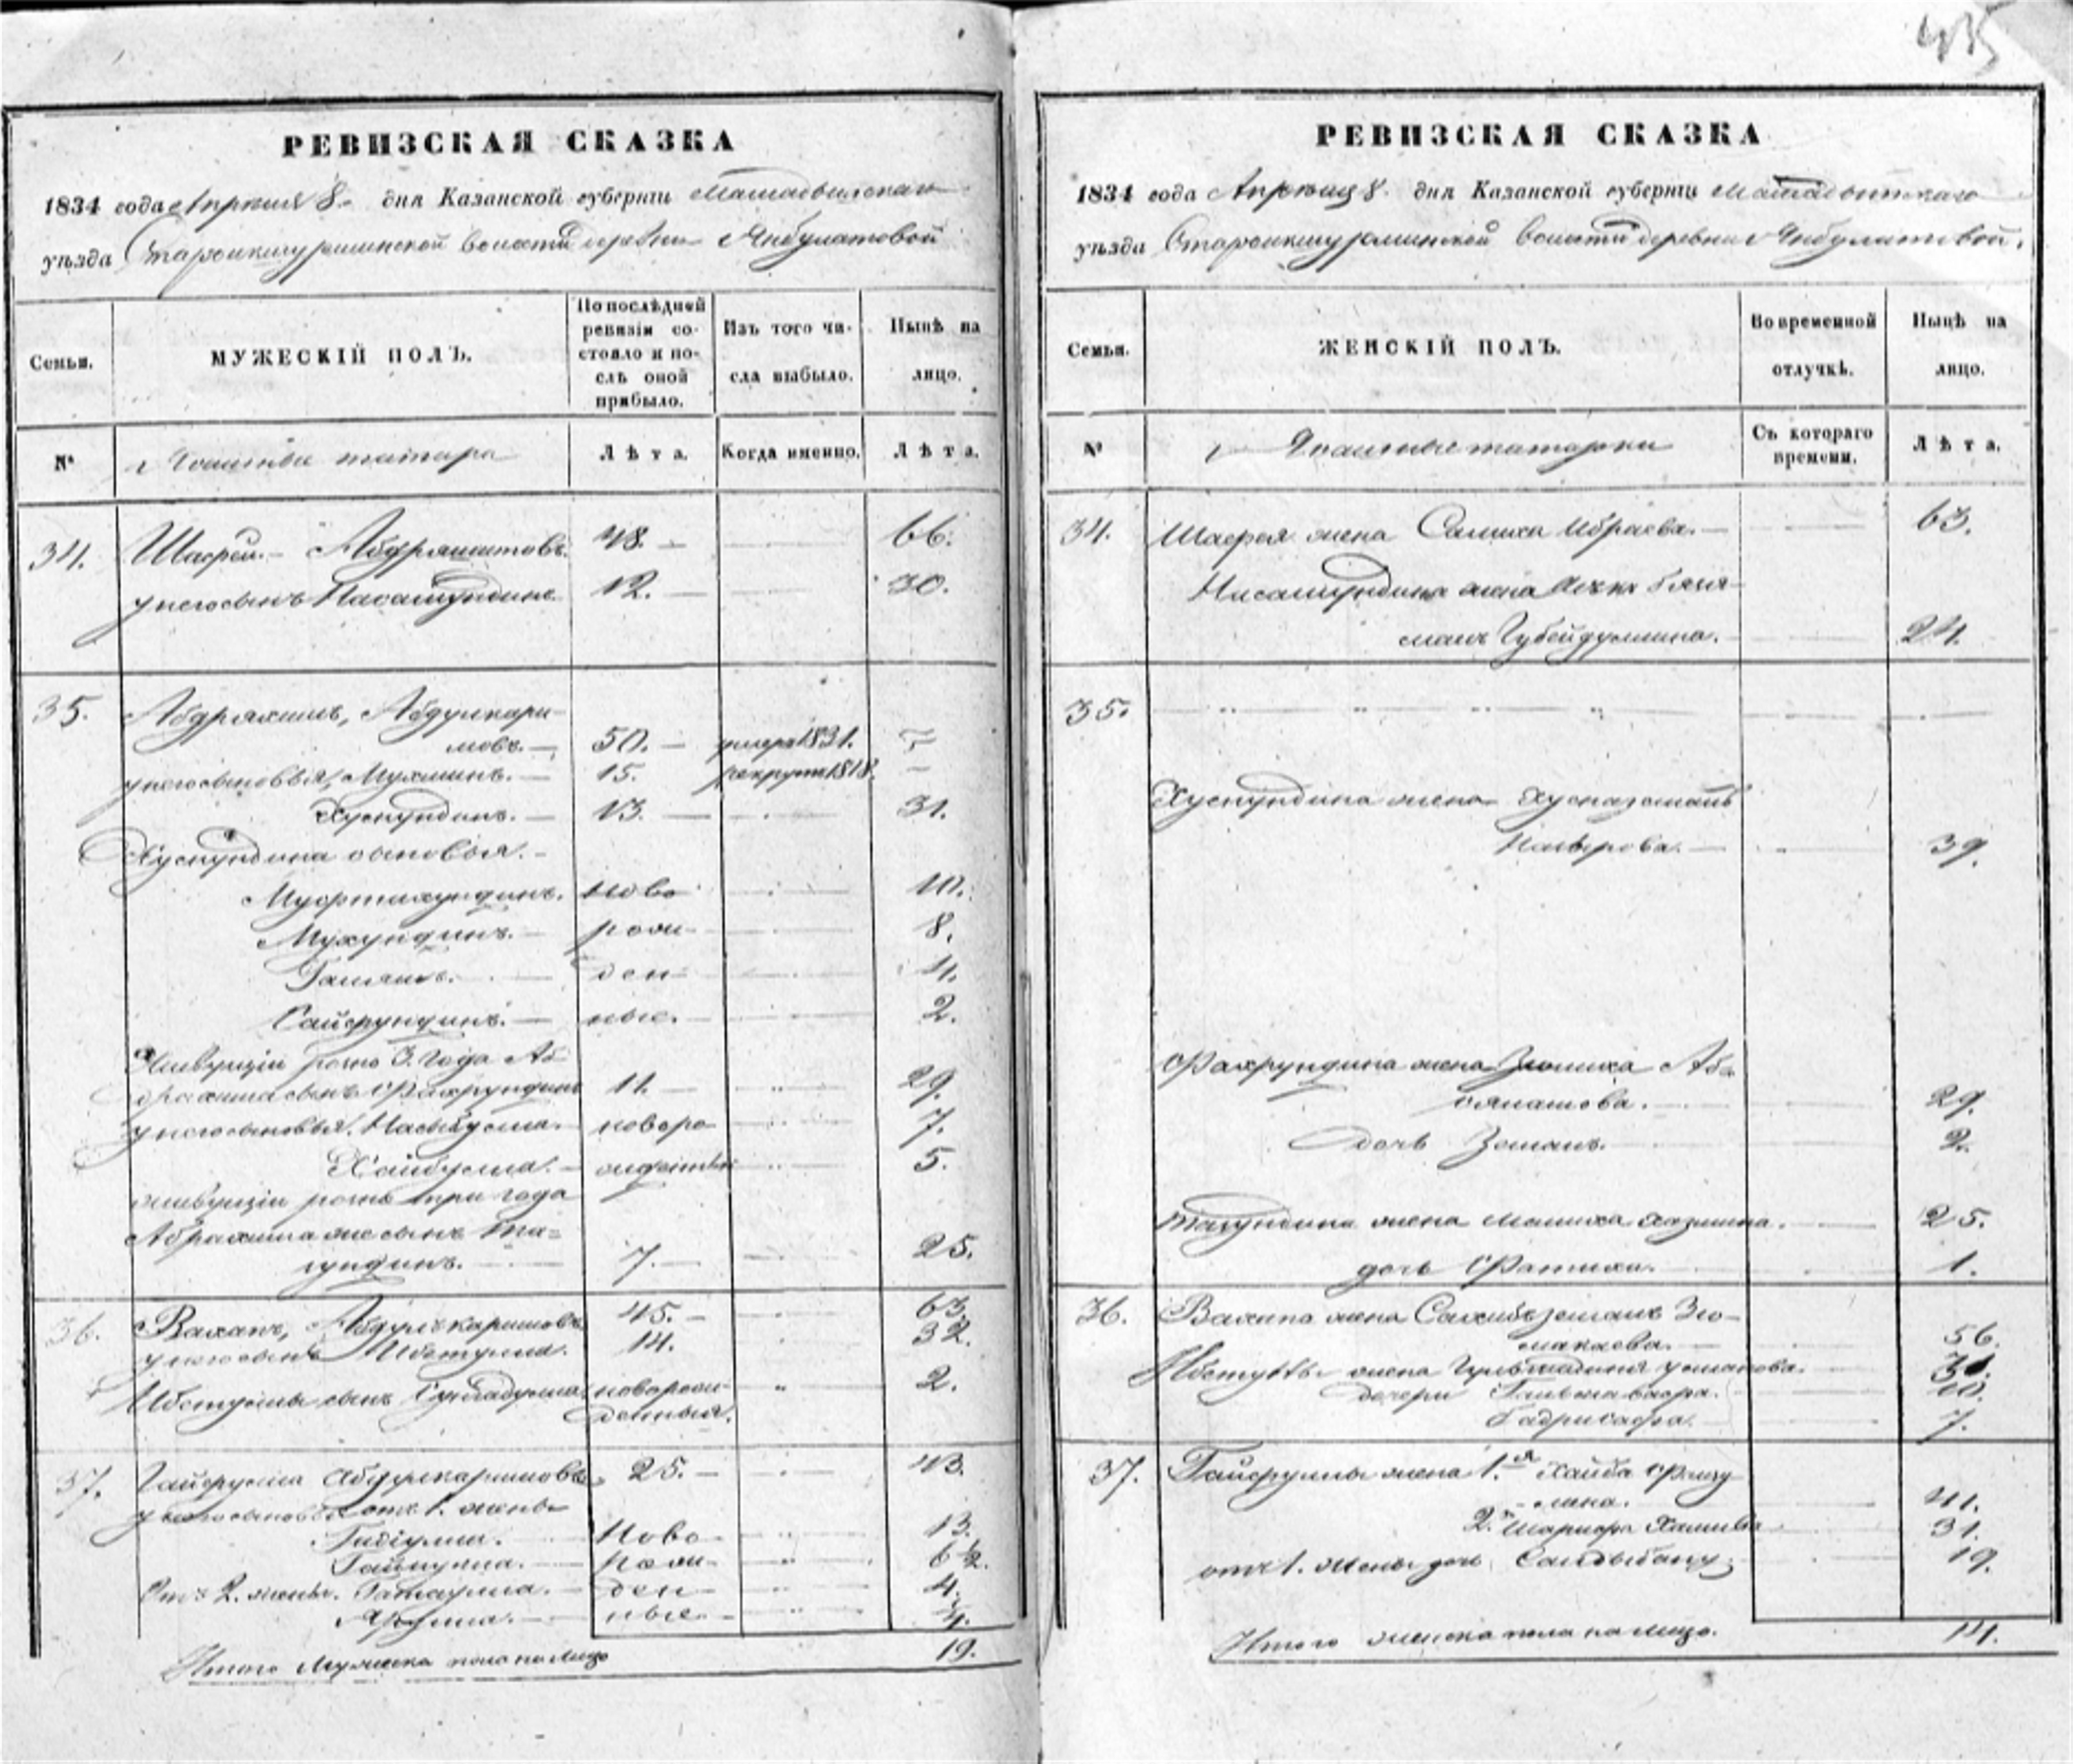 435
РЕВИЗСКАЯ СКАЗКА
1834 года Апреля 8. дня Казанской губерніи Мамадышскаго
уѣзда Староикшурминской волости деревни Янбулатовой
Семьи.
МУЖЕСКІЙ ПОЛЪ.
По послѣдней ревизіи состояло и послѣ оной прибыло.
Изъ того числа выбыло.
Нынѣ на лицо.
№
Ясашные татара
Лѣта.
Когда именно.
Лѣта.
34. Шафей Абдряшитовъ. 48. 66.
у него сынъ Насамундинъ 12. 30.
35. Абдряхимъ, Абдулкари-
мовъ. 50. умеръ 1831.
у него сыновья, Мухминъ. 15. рекрутъ 1818.
Хуснундинъ. 13. 31.
Хуснундина сыновья.
Муфтихундинъ. ново 10.
Мухундинъ. рож 8.
ден 4.
Сайфундинъ. ные. 2.
Живущіи розно 3. года Аб
драхима сынъ Фахрундинъ 11. 29.
у него сыновья. Насыбулла. новоро 7.
Хайбулла. жденные 5.
живущіи рознь три года
Абрахима же сынъ Та=
зундинъ. 7. 25.
36. Вахапъ, Абдулъкаримовъ 45. 63.
у него сынъ Ибетулла. 14. 32.
Ибетуллы сынъ новорож 2.
денныя.
37. Гайфулла Абдулкаримовъ. 25. 43.
у него сыновья от 1. жены
Гадіулла. Ново 13.
Гайнулла. рож 6 1/2.
От 2. жены. Гатаулла. ден 4.
ные 1/4.
Итого Мужеска пола на лицо 19.
РЕВИЗСКАЯ СКАЗКА
1834 года Апреля 8. дня Казанской губерніи Мамадышскаго
уѣзда Староикшурминской волости деревни Янбулатовой.
Семьи.
ЖЕНСКІЙ ПОЛЪ.
Во временной отлучкѣ.
Нынѣ на лицо.
№
Ясашные татарки
Съ котораго времени.
Лѣта.
34. Шафея жена Салиха Ибраева. 63.
Нисамундина жена
Губейдуллина. 24.
35.
Хуснундина жена Хусназеманъ
39.
Фахрундина жена Зюлиха Аб
29.
дочьЗеманъ. 2.
Тазундина жена Малиха Хазмина. 25.
дочь Фатиха. 1.
36. Вахапа жена Сахибъземанъ Зю-
макаева. 56.
жена Усманова. 31.
дочери 10.
Бадрисафа. 7.
37. Гайфуллы жена 1.я Хайба Фейзу
лина. 41.
2.я 31.
от 1. жены дочь 19.
Итого женска пола на лицо. 14.